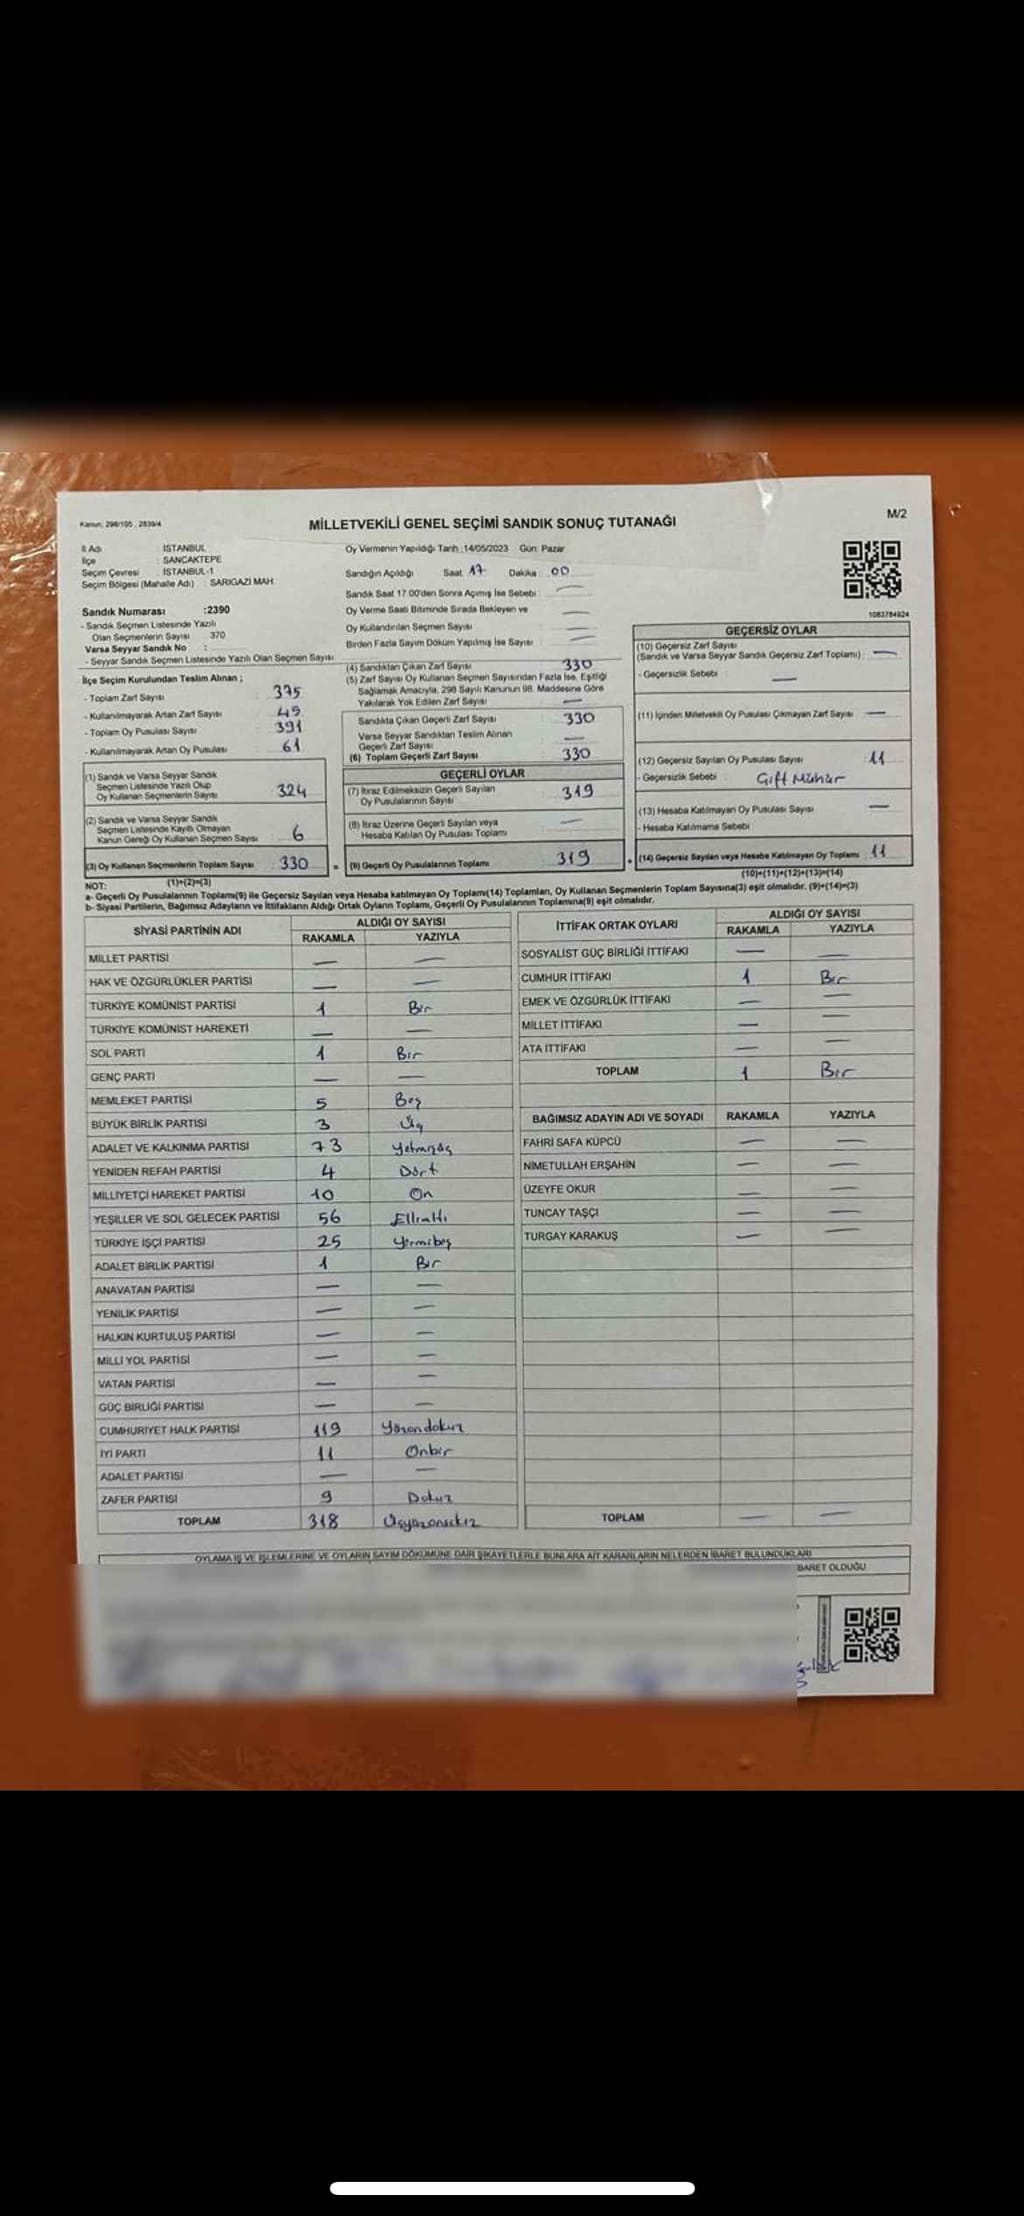 Kanun; 298/105 , 2839/4
MİLLETVEKİLİ GENEL SEÇİMİ SANDIK SONUÇ TUTANAĞI
M/2
İl Adı : İSTANBUL
İlçe : SANCAKTEPE
Seçim Çevresi : İSTANBUL-1
Seçim Bölgesi (Mahalle Adı) : SARIGAZİ MAH.
Sandık Numarası :2390
- Sandık Seçmen Listesinde Yazılı
Olan Seçmenlerin Sayısı 370
Varsa Seyyar Sandık No :
- Seyyar Sandık Seçmen Listesinde Yazılı Olan Seçmen Sayısı
İlçe Seçim Kurulundan Teslim Alınan ;
- Toplam Zarf Sayısı 375
- Kullanılmayarak Artan Zarf Sayısı 45
- Toplam Oy Pusulası Sayısı 391
- Kullanılmayarak Artan Oy Pusulası 61
(1) Sandık ve Varsa Seyyar Sandık
Seçmen Listesinde Yazılı Olup
Oy Kullanan Seçmenlerin Sayısı 324
(2) Sandık ve Varsa Seyyar Sandık
Seçmen Listesinde Kayıtlı Olmayan
Kanun Gereği Oy Kullanan Seçmen Sayısı 6
(3) Oy Kullanan Seçmenlerin Toplam Sayısı 330 =
(1)+(2)=(3)
Oy Vermenin Yapıldığı Tarih :14/05/2023 Gün: Pazar
Sandığın Açıldığı Saat 17 Dakika 00
Sandık Saat 17.00'den Sonra Açımış İse Sebebi : —
Oy Verme Saati Bitiminde Sırada Bekleyen ve
Oy Kullandırılan Seçmen Sayısı —
Birden Fazla Sayım Döküm Yapılmış İse Sayısı —
(4) Sandıktan Çıkan Zarf Sayısı 330
(5) Zarf Sayısı Oy Kullanan Seçmen Sayısından Fazla İse, Eşitliği
Sağlamak Amacıyla, 298 Sayılı Kanunun 98. Maddesine Göre
Yakılarak Yok Edilen Zarf Sayısı —
Sandıkta Çıkan Geçerli Zarf Sayısı 330
Varsa Seyyar Sandıktan Teslim Alınan
Geçerli Zarf Sayısı —
(6) Toplam Geçerli Zarf Sayısı 330
GEÇERLİ OYLAR
(7) İtiraz Edilmeksizin Geçerli Sayılan
Oy Pusulalarının Sayısı 319
(8) İtiraz Üzerine Geçerli Sayılan veya
Hesaba Katılan Oy Pusulası Toplamı —
(9) Geçerli Oy Pusulalarının Toplamı 319
1083784924
GEÇERSİZ OYLAR
(10) Geçersiz Zarf Sayısı
(Sandık ve Varsa Seyyar Sandık Geçersiz Zarf Toplamı) : —
- Geçersizlik Sebebi : —
(11) İçinden Milletvekili Oy Pusulası Çıkmayan Zarf Sayısı : —
(12) Geçersiz Sayılan Oy Pusulası Sayısı : 11
- Geçersizlik Sebebi : Çift Mühür
(13) Hesaba Katılmayan Oy Pusulası Sayısı —
- Hesaba Katılmama Sebebi :
(14) Geçersiz Sayılan veya Hesaba Katılmayan Oy Toplamı : 11
(10)+(11)+(12)+(13)=(14)
NOT:
a- Geçerli Oy Pusulalarının Toplamı(9) ile Geçersiz Sayılan veya Hesaba katılmayan Oy Toplamı(14) Toplamları, Oy Kullanan Seçmenlerin Toplam Sayısına(3) eşit olmalıdır. (9)+(14)=(3)
b- Siyasi Partilerin, Bağımsız Adayların ve İttifakların Aldığı Ortak Oyların Toplamı, Geçerli Oy Pusulalarının Toplamına(9) eşit olmalıdır.
SİYASİ PARTİNİN ADI ALDIĞI OY SAYISI
RAKAMLA YAZIYLA
MİLLET PARTİSİ — —
HAK VE ÖZGÜRLÜKLER PARTİSİ — —
TÜRKİYE KOMÜNİST PARTİSİ 1 Bir
TÜRKİYE KOMÜNİST HAREKETİ — —
SOL PARTİ 1 Bir
GENÇ PARTİ — —
MEMLEKET PARTİSİ 5 Beş
BÜYÜK BİRLİK PARTİSİ 3 Üç
ADALET VE KALKINMA PARTİSİ 73 Yetmişüç
YENİDEN REFAH PARTİSİ 4 Dört
MİLLİYETÇİ HAREKET PARTİSİ 10 On
YEŞİLLER VE SOL GELECEK PARTİSİ 56 Ellialtı
TÜRKİYE İŞÇİ PARTİSİ 25 Yirmibeş
ADALET BİRLİK PARTİSİ 1 Bir
ANAVATAN PARTİSİ — —
YENİLİK PARTİSİ — —
HALKIN KURTULUŞ PARTİSİ — —
MİLLİ YOL PARTİSİ — —
VATAN PARTİSİ — —
GÜÇ BİRLİĞİ PARTİSİ — —
CUMHURİYET HALK PARTİSİ 119 Yüzondokuz
İYİ PARTİ 11 Onbir
ADALET PARTİSİ — —
ZAFER PARTİSİ 9 Dokuz
TOPLAM 318 Üçyüzonsekiz
İTTİFAK ORTAK OYLARI ALDIĞI OY SAYISI
RAKAMLA YAZIYLA
SOSYALİST GÜÇ BİRLİĞİ İTTİFAKI — —
CUMHUR İTTİFAKI 1 Bir
EMEK VE ÖZGÜRLÜK İTTİFAKI — —
MİLLET İTTİFAKI — —
ATA İTTİFAKI — —
TOPLAM 1 Bir
BAĞIMSIZ ADAYIN ADI VE SOYADI RAKAMLA YAZIYLA
FAHRİ SAFA KÜPCÜ — —
NİMETULLAH ERŞAHİN — —
ÜZEYFE OKUR — —
TUNCAY TAŞÇI — —
TURGAY KARAKUŞ — —
TOPLAM — —
OYLAMA İŞ VE İŞLEMLERİNE VE OYLARIN SAYIM DÖKÜMÜNE DAİR ŞİKAYETLERLE BUNLARA AİT KARARLARIN NELERDEN İBARET BULUNDUKLARI
BARET OLDUĞU